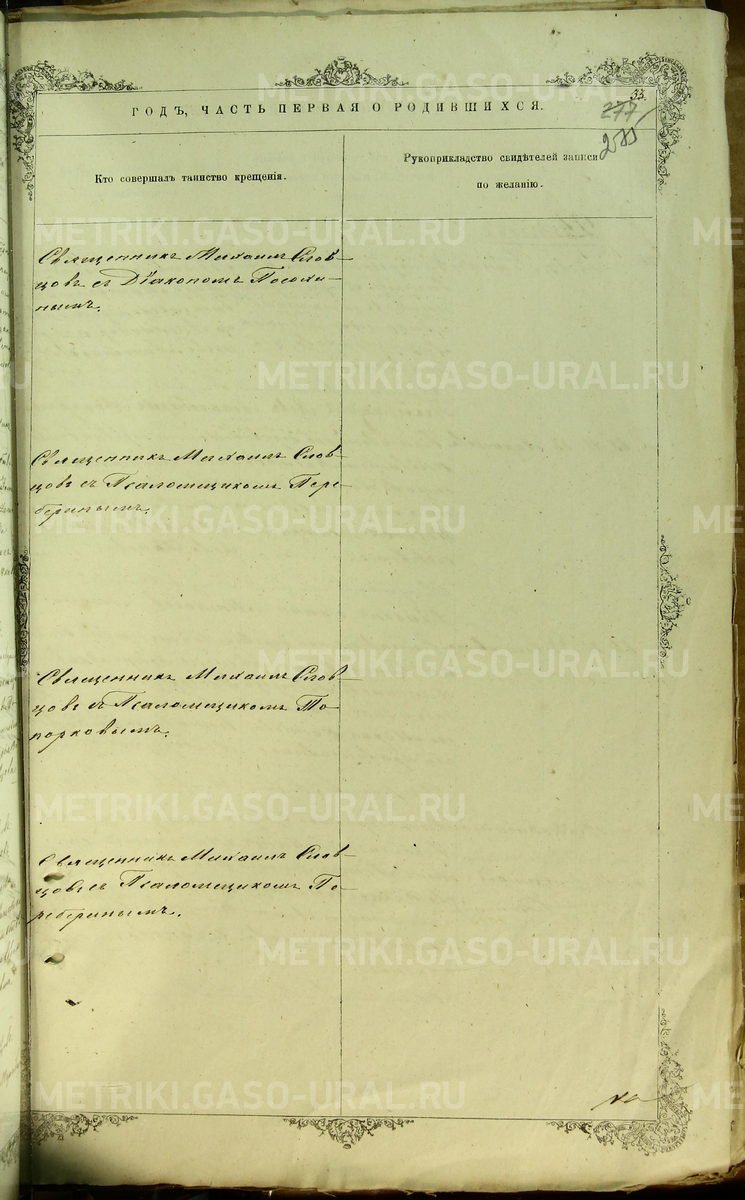 33.
277
ГОДЪ, ЧАСТЬ ПЕРВАЯ О РОДИВШИХСЯ.
Кто совершалъ таинство крещенія.
Рукоприкладство свидѣтелей записи
по желанію.
Священникъ Михаилъ Слов-
цовъ съ Діакономъ Посохи-
нымъ.
Священникъ Михаилъ Слов-
цовъ съ Псаломщикомъ Пере-
беринымъ.
Священникъ Михаилъ Слов-
цовъ съ Псаломщикомъ То-
порковымъ.
Священникъ Михаилъ Слов-
цовъ съ Псаломщикомъ Пе-
реберинымъ.
METRIKI.GASO-URAL.RU